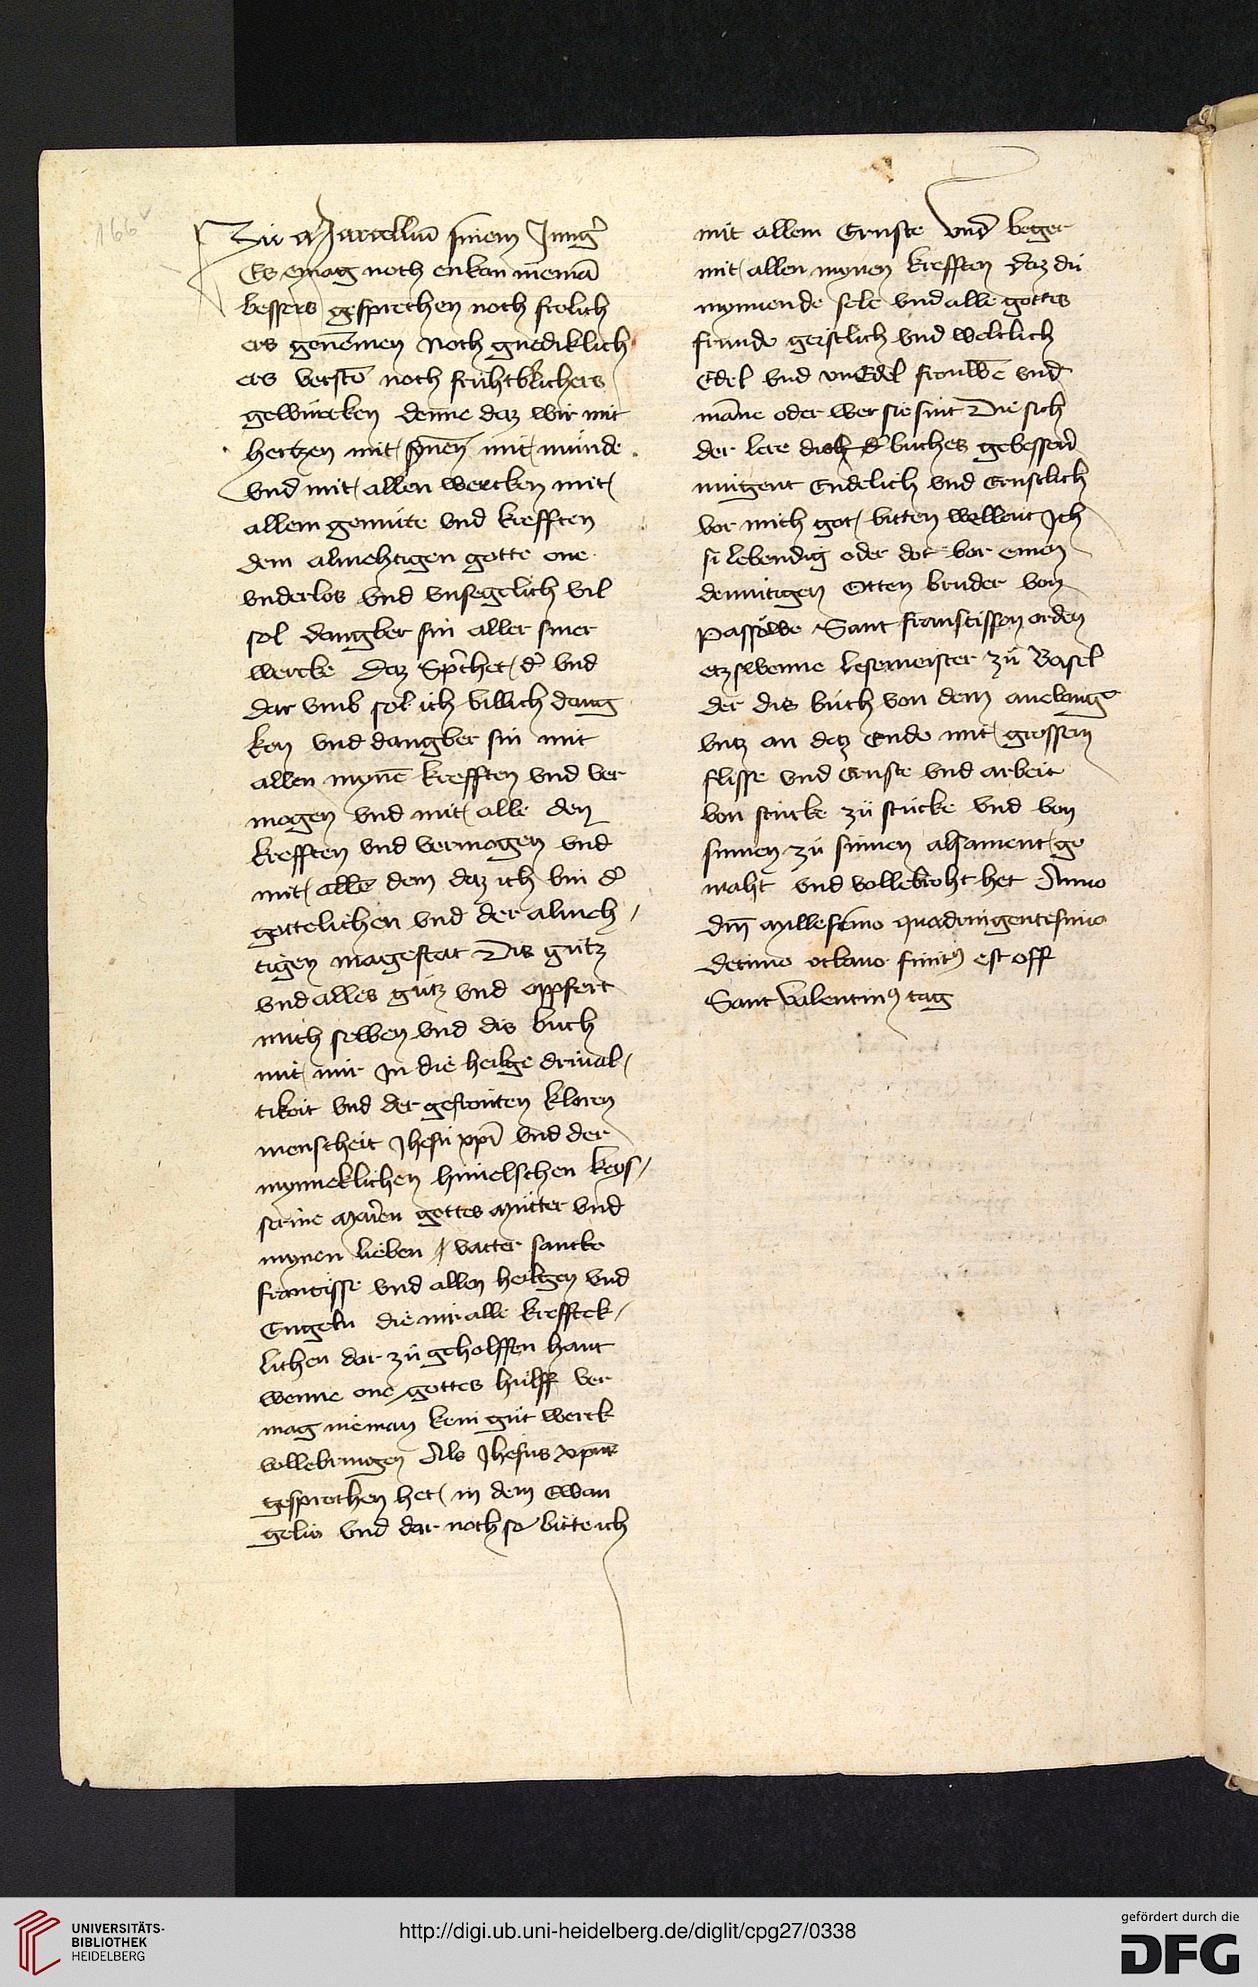 166v
Zü Marcellm̄ sinem Jung᷑
Es enmag noch enkan niemā
bessers gesprechen noch frolich
ers genēmen noch gnediklich
ers verstō noch fruhtb᷑lichers
gewürcken denne daz wir mit
hertzen mit sȳnen mit munde
vnd mit allen wercken mit
allem gemüte vnd krefften
dem almehtigen gotte one
vnderlos vnd vnsegelich vil
sol dangber sin aller siner
wercke Daz sp᷑chet d᷑ vnd
dar vmb sol ich billich dang
ken vnd dangber sin mit
allen mynē krefften vnd ver
mogen vnd mit alle den
krefften vnd vermogen vnd
mit allē dem daz ich bin d᷑
gottelichen vnd der almeh
tigen magestat Dis gůtz
vnd alles gůtz vnd opffert
mich selben vnd dis buch
mit mir In die heilge driual
tikeit vnd der gefronten kloren
menscheit Jhesu xp̄i vnd der
mynneklichen himelschen keys
serine Mar᷑en gottes mütter vnd
mynen lieben vatter sancte
francisse vnd allen heilgen vnd
Engeln die mir alle krefftek
lichen dar zů geholffen hant
wenne one gottes hulff ver
mag nieman kein gůt werck
vollebringen Als Jhesus xp̄us
gesprochen het in dem ewan
gelio vnd dar noch so bitte ich
mit allem Ernste vnd beger
mit allen mynen krefften daz dü
mynnende sele vnd alle gottes
frunde geistlich vnd weltlich
Edel vnd vnEdel frouwē vnd
māne oder wer sie sint Die sich
der lere d᷑ buches gebessern
mügent Endelich vnd Ernstlich
vor mich got bitten wellent Ich
si lebendig oder dot vor einen
demütigen Otten bruder von
Passowe Sant franscissen orden
etzswenne lesemeister zů Basel
der dis büch von dem anefang
vntz an daz Ende mit grossem
flisse vnd Ernste vnd arbeit
von stücke zü stücke vnd von
sinnen zü sinnen alsament ge
maht vnd vollebroht het Anno
dm̄ Millesīmo quadringentesimo
decimo octauo finit᷒ est off
Sant valentin᷒ tag
UNIVERSITÄTS-
BIBLIOTHEK
HEIDELBERG
http://digi.ub.uni-heidelberg.de/diglit/cpg27/0338
gefördert durch die
DFG